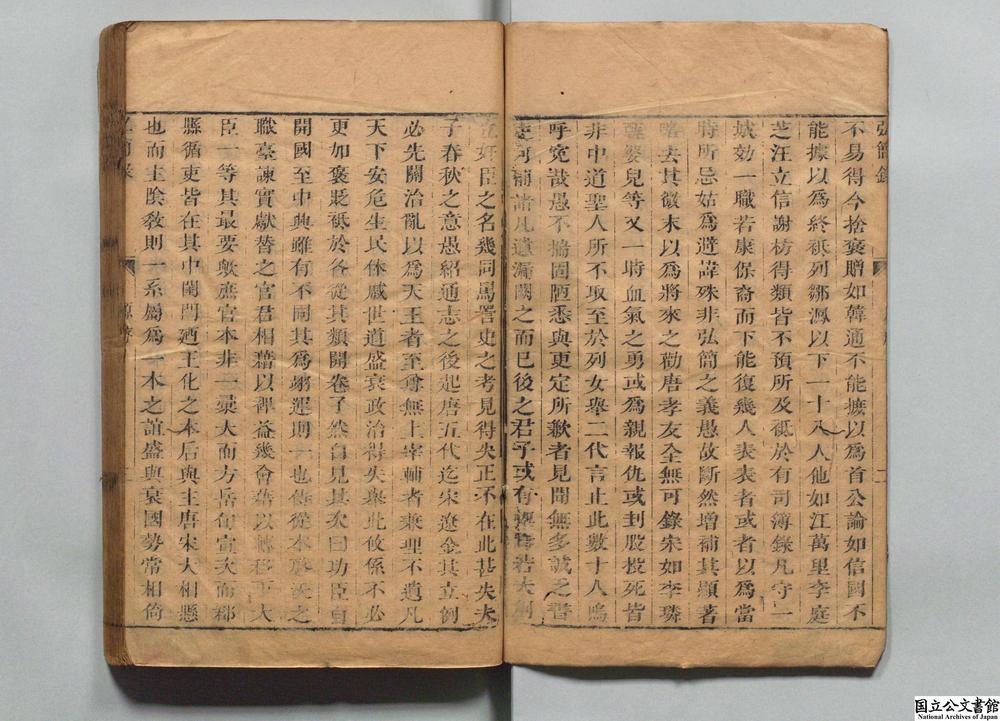 弘簡錄
不易得今捨褒贈如韓通不能摭以爲首公論如信國不
能據以爲終秪列鄒㵯以下一十八人他如江萬里李庭
芝汪立信謝枋得類皆不預所及秪於有司簿錄凡守一
城効一職若康保裔而下能復幾人表表者或者以爲當
時所忌姑爲避諱殊非弘簡之義愚故斷然增補其顯著
略去其微末以爲將來之勸唐孝友全無可錄宋如李璘
甄婆兒等又一時血氣之勇或爲親報仇或刲股投死皆
非中道聖人所不取至於列女舉二代言止此數十人嗚
呼寃哉愚不揣固陋悉與更定所歉者見聞無多誠乏書
諸凡遺漏闕之而已後之君子或有
奸臣之名幾同罵詈史之考見得失正不在此甚失夫
子春秋之意愚紹通志之後起唐五代迄宋遼金其立例
必先關治亂以爲天王者至尊無上宰輔者兼理不遺凡
天下安危生民休戚世道盛衰政治得失與此攸係不必
更加褒貶秪於各從其類開卷了然自見其次曰功臣自
開國至中興雖有不同其爲翊運則一也侍從本
職臺諫實獻替之官君相藉以裨益幾會藉以轉移下大
臣一等其最要歟庶官本非一彙大而方岳旬宣次而郡
縣循吏皆在其中閨門廼王化之本后與主唐宋大相懸
也而主陰敎則一系屬爲一本之誼盛與衰國勢常相倚
国立公文書館
National Archives of Japan